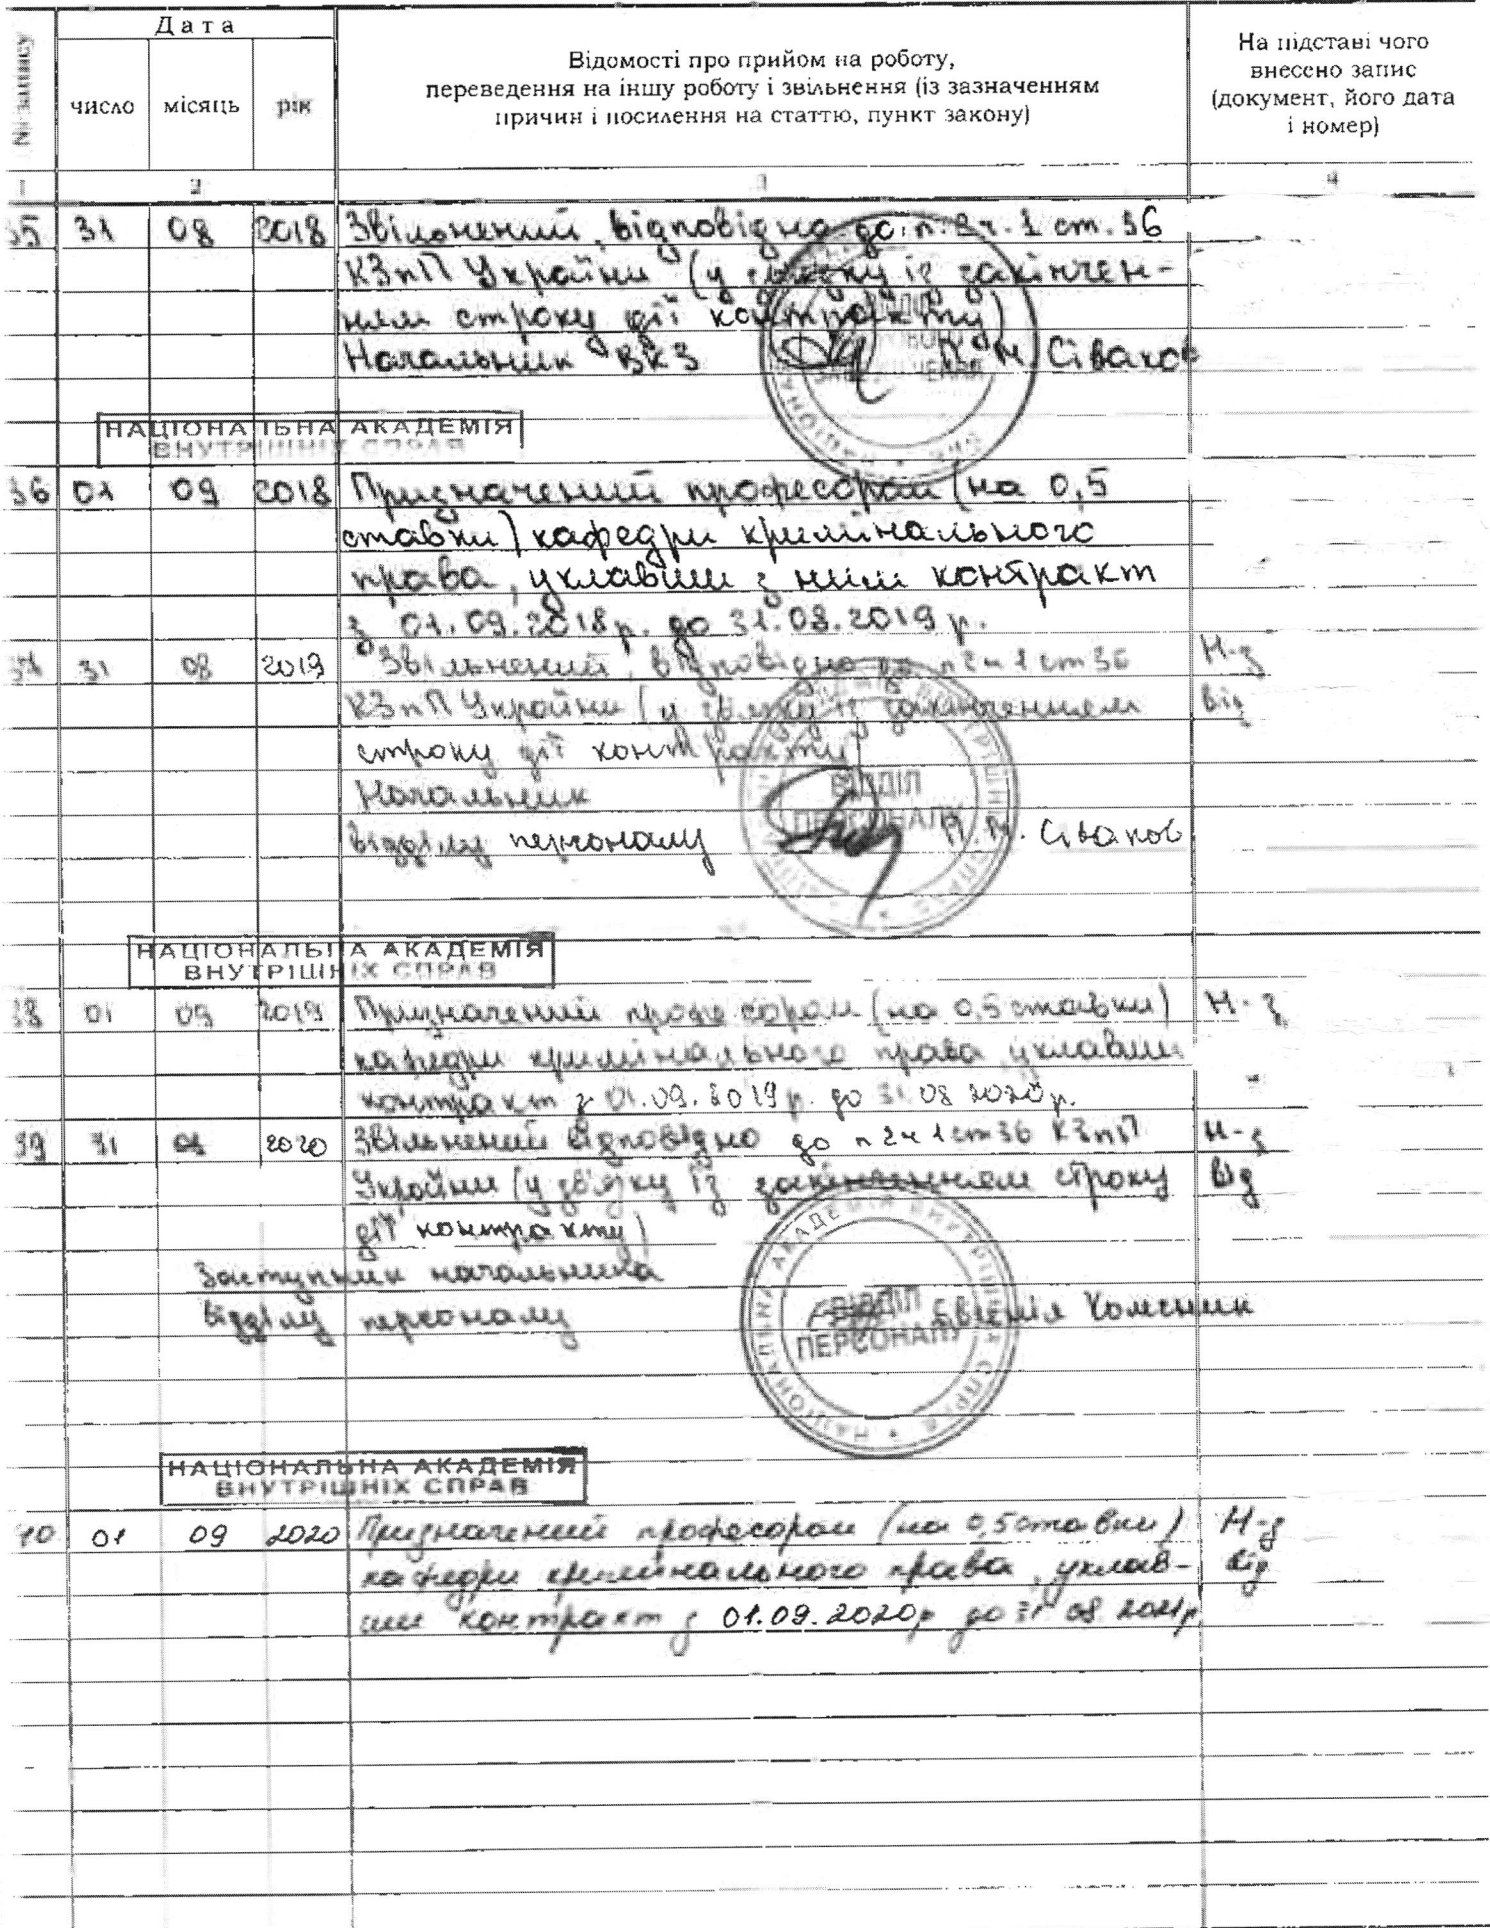 № запису
Дата
число місяць рік
Відомості про прийом на роботу,
переведення на іншу роботу і звільнення (із зазначенням
причин і посилення на статтю, пункт закону)
На підставі чого
внесено запис
(документ, його дата
і номер)
1 2 3 4
35 31 08 2018 Звільнений, відповідно до п. 2 ч. 1 ст. 36
КЗпП України (у зв'язку із закінчен-
ням строку дії контракту)
Начальник ВКЗ П. М. Сіваков
НАЦІОНАЛЬНА АКАДЕМІЯ
ВНУТРІШНІХ СПРАВ
36 01 09 2018 Призначений професором (на 0,5
ставки) кафедри кримінального
права, уклавши з ним контракт
з 01.09.2018 р. до 31.08.2019 р.
37 31 08 2019 Звільнений, відповідно до п 2 ч 1 ст 36 Н-з
КЗпП України (у зв'язку із закінченням від
строку дії контракту)
Начальник
відділу персоналу П. М. Сіваков
ВІДДІЛ
ПЕРСОНАЛУ
НАЦІОНАЛЬНА АКАДЕМІЯ
ВНУТРІШНІХ СПРАВ
38 01 09 2019 Призначений професором (на 0,5 ставки) Н-з
кафедри кримінального права, уклавши
контракт з 01.09.2019 р. до 31 08 2020 р.
39 31 08 2020 Звільнений відповідно до п 2 ч 1 ст 36 КЗпП Н-з
України (у зв'язку із закінченням строку від
дії контракту)
Заступник начальника
відділу персоналу Євгенія
НАЦІОНАЛЬНА АКАДЕМІЯ ВНУТРІШНІХ СПРАВ
ВІДДІЛ
ПЕРСОНАЛУ
НАЦІОНАЛЬНА АКАДЕМІЯ
ВНУТРІШНІХ СПРАВ
40 01 09 2020 Призначений професором (на 0,5 ставки) Н-з
кафедри кримінального права, уклав- від
ши контракт з 01.09.2020р до 31 08 2021 р